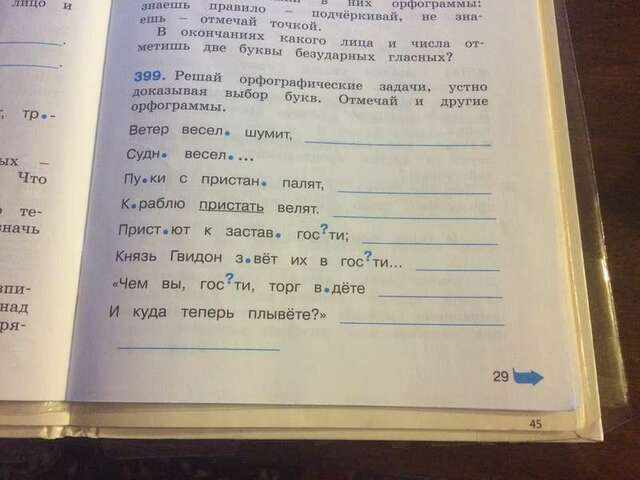 лицо и
т, тр•-
ых –
Что
те-
значь
зпи-
над
ря-
в них орфограммы:
знаешь правило – подчёркивай, не зна-
ешь – отмечай точкой.
В окончаниях какого лица и числа от-
метишь две буквы безударных гласных?
399. Решай орфографические задачи, устно
доказывая выбор букв. Отмечай и другие
орфограммы.
Ветер весел• шумит,
Судн• весел•...
Пу•ки с пристан• палят,
К•раблю пристать велят.
Прист•ют к застав• гос?ти;
Князь Гвидон з•вёт их в гос?ти...
«Чем вы, гос?ти, торг в•дёте
И куда теперь плывёте?»
29
45